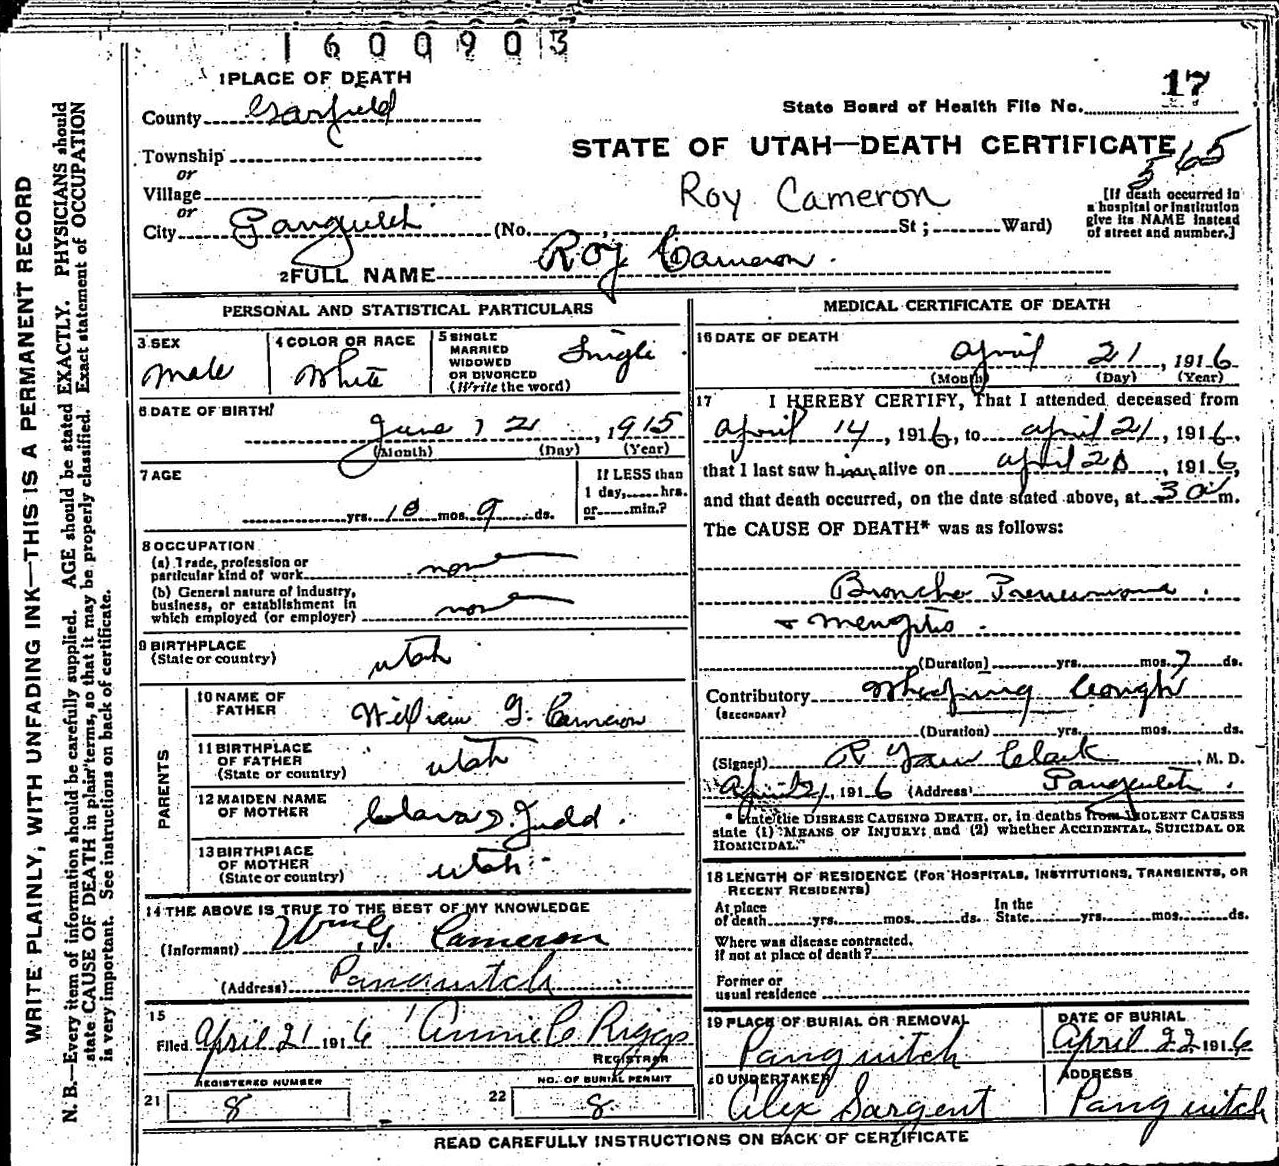 1600903
1 PLACE OF DEATH
17
County Garfield
State Board of Health File No.
Township
STATE OF UTAH—DEATH CERTIFICATE
565
or
Village
Roy Cameron
[If death occurred in a hospital or institution give its NAME instead of street and number.]
or
City Panguitch (No. , St ; Ward)
2 FULL NAME Roy Cameron.
PERSONAL AND STATISTICAL PARTICULARS
3 SEX
Male
4 COLOR OR RACE
White
5 SINGLE
MARRIED
WIDOWED
OR DIVORCED
(Write the word)
Single
6 DATE OF BIRTH
June 12 , 1915
(Month) (Day) (Year)
7 AGE
yrs. 10 mos. 9 ds.
If LESS than
1 day, hrs.
or min.?
8 OCCUPATION
(a) Trade, profession or
particular kind of work none
(b) General nature of industry,
business, or establishment in
which employed (or employer) none
9 BIRTHPLACE
(State or country) Utah
PARENTS
10 NAME OF
FATHER William G. Cameron
11 BIRTHPLACE
OF FATHER
(State or country) Utah
12 MAIDEN NAME
OF MOTHER Clara D. Judd.
13 BIRTHPLACE
OF MOTHER
(State or country) Utah
14 THE ABOVE IS TRUE TO THE BEST OF MY KNOWLEDGE
(Informant) Wm G. Cameron
(Address) Panguitch
15
Filed April 21 1916 Annie C Riggs
REGISTRAR
REGISTERED NUMBER
21 8
NO. OF BURIAL PERMIT
22 8
MEDICAL CERTIFICATE OF DEATH
16 DATE OF DEATH
April 21 , 1916
(Month) (Day) (Year)
17 I HEREBY CERTIFY, That I attended deceased from
April 14 , 1916, to April 21, 1916,
that I last saw him alive on April 20 , 1916,
and that death occurred, on the date stated above, at 3 a m.
The CAUSE OF DEATH* was as follows:
Broncho Pneumonia.
+ Mengitis.
(Duration) yrs. mos. 7 ds.
Contributory Whooping Cough
(SECONDARY)
(Duration) yrs. mos. ds.
(Signed) R Clark , M. D.
April 21, 1916 (Address) Panguitch.
* State the DISEASE CAUSING DEATH, or, in deaths from VIOLENT CAUSES
state (1) MEANS OF INJURY; and (2) whether ACCIDENTAL, SUICIDAL OR
HOMICIDAL.
18 LENGTH OF RESIDENCE (FOR HOSPITALS, INSTITUTIONS, TRANSIENTS, OR
RECENT RESIDENTS)
At place In the
of death yrs. mos. ds. State yrs. mos. ds.
Where was disease contracted,
if not at place of death?
Former or
usual residence
19 PLACE OF BURIAL OR REMOVAL
Panguitch
DATE OF BURIAL
April 22 1916
20 UNDERTAKER
Alex Sargent
ADDRESS
Panguitch
READ CAREFULLY INSTRUCTIONS ON BACK OF CERTIFICATE
WRITE PLAINLY, WITH UNFADING INK—THIS IS A PERMANENT RECORD
N. B.—Every item of information should be carefully supplied. AGE should be stated EXACTLY. PHYSICIANS should
state CAUSE OF DEATH in plain terms, so that it may be properly classified. Exact statement of OCCUPATION
is very important. See instructions on back of certificate.